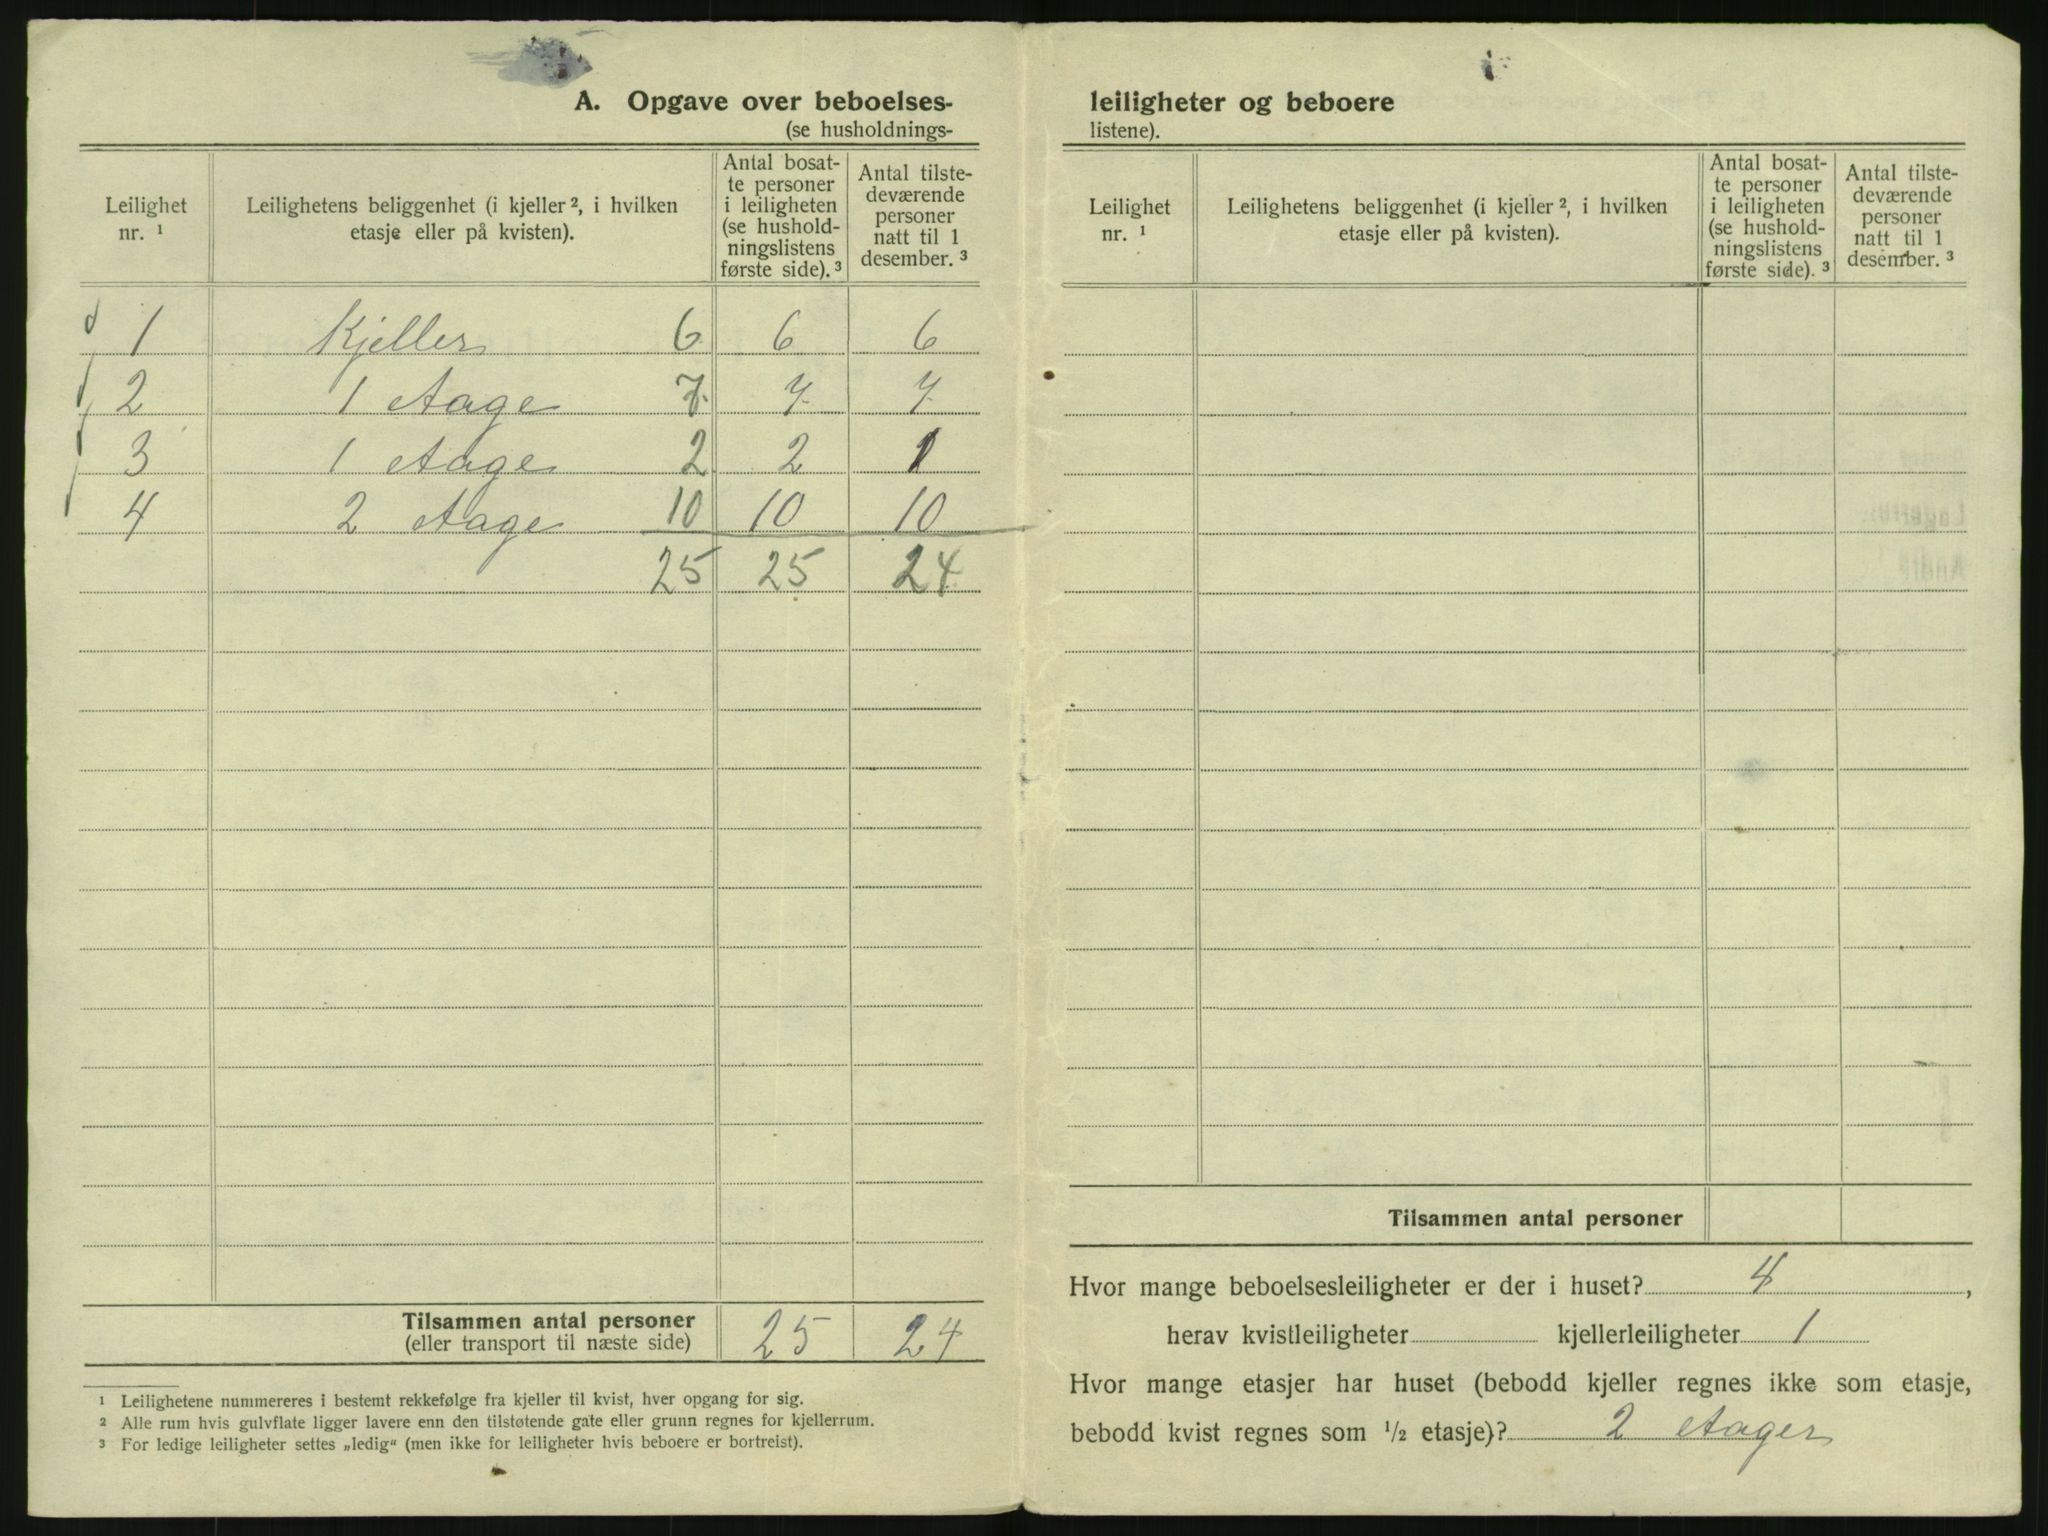 A. Opgave over beboelses-
(se husholdnings-
Leilighet nr. ¹
Leilighetens beliggenhet (i kjeller ², i hvilken
etasje eller på kvisten).
Antal bosat-
te personer
i leiligheten
(se hushold-
ningslistens
første side). ³
Antal tilste-
deværende
personer
natt til 1
desember. ³
1 Kjeller 6 6 6
2 1 Etage 7 7 7
3 1 Etage 2 2 1
4 2 Etage 10 10 10
25 25 24
Tilsammen antal personer 25 24
(eller transport til næste side)
¹ Leilighetene nummereres i bestemt rekkefølge fra kjeller til kvist, hver opgang for sig.
² Alle rum hvis gulvflate ligger lavere enn den tilstøtende gate eller grunn regnes for kjellerrum.
³ For ledige leiligheter settes „ledig“ (men ikke for leiligheter hvis beboere er bortreist).
leiligheter og beboere
listene).
Leilighet nr. ¹
Leilighetens beliggenhet (i kjeller ², i hvilken
etasje eller på kvisten).
Antal bosat-
te personer
i leiligheten
(se hushold-
ningslistens
første side). ³
Antal tilste-
deværende
personer
natt til 1
desember. ³
Tilsammen antal personer
Hvor mange beboelsesleiligheter er der i huset? 4,
herav kvistleiligheter kjellerleiligheter 1
Hvor mange etasjer har huset (bebodd kjeller regnes ikke som etasje,
bebodd kvist regnes som ½ etasje)? 2 Etager